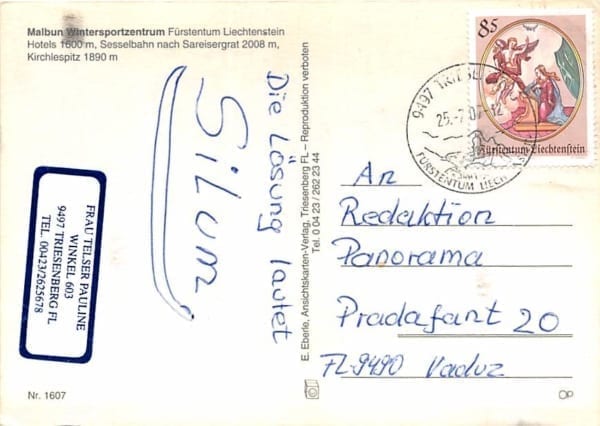 Malbun Wintersportzentrum Fürstentum Liechtenstein
Hotels 1600 m, Sesselbahn nach Sareisergrat 2008 m,
Kirchlespitz 1890 m
Die Lösung lautet
Silum
FRAU TELSER PAULINE
WINKEL 603
9497 TRIESENBERG FL
TEL. 00423/2625678
Nr. 1607
E. Eberle, Ansichtskarten-Verlag, Triesenberg FL – Reproduktion verboten
Tel. 0 04 23 / 262 23 44
85
Fürstentum Liechtenstein
9497
25.
12
FÜRSTENTUM
An
Redaktion
Panorama
Pradafant 20
FL-9490 Vaduz